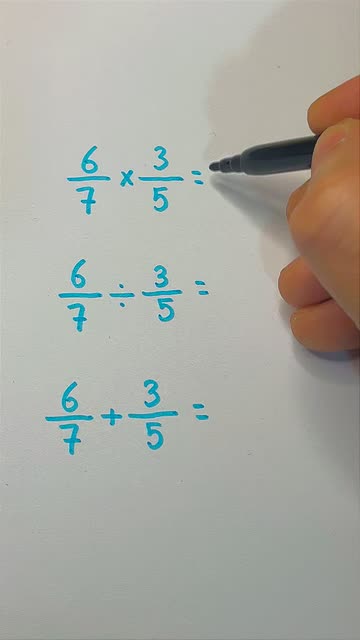 6/7 × 3/5 =
6/7 ÷ 3/5 =
6/7 + 3/5 =